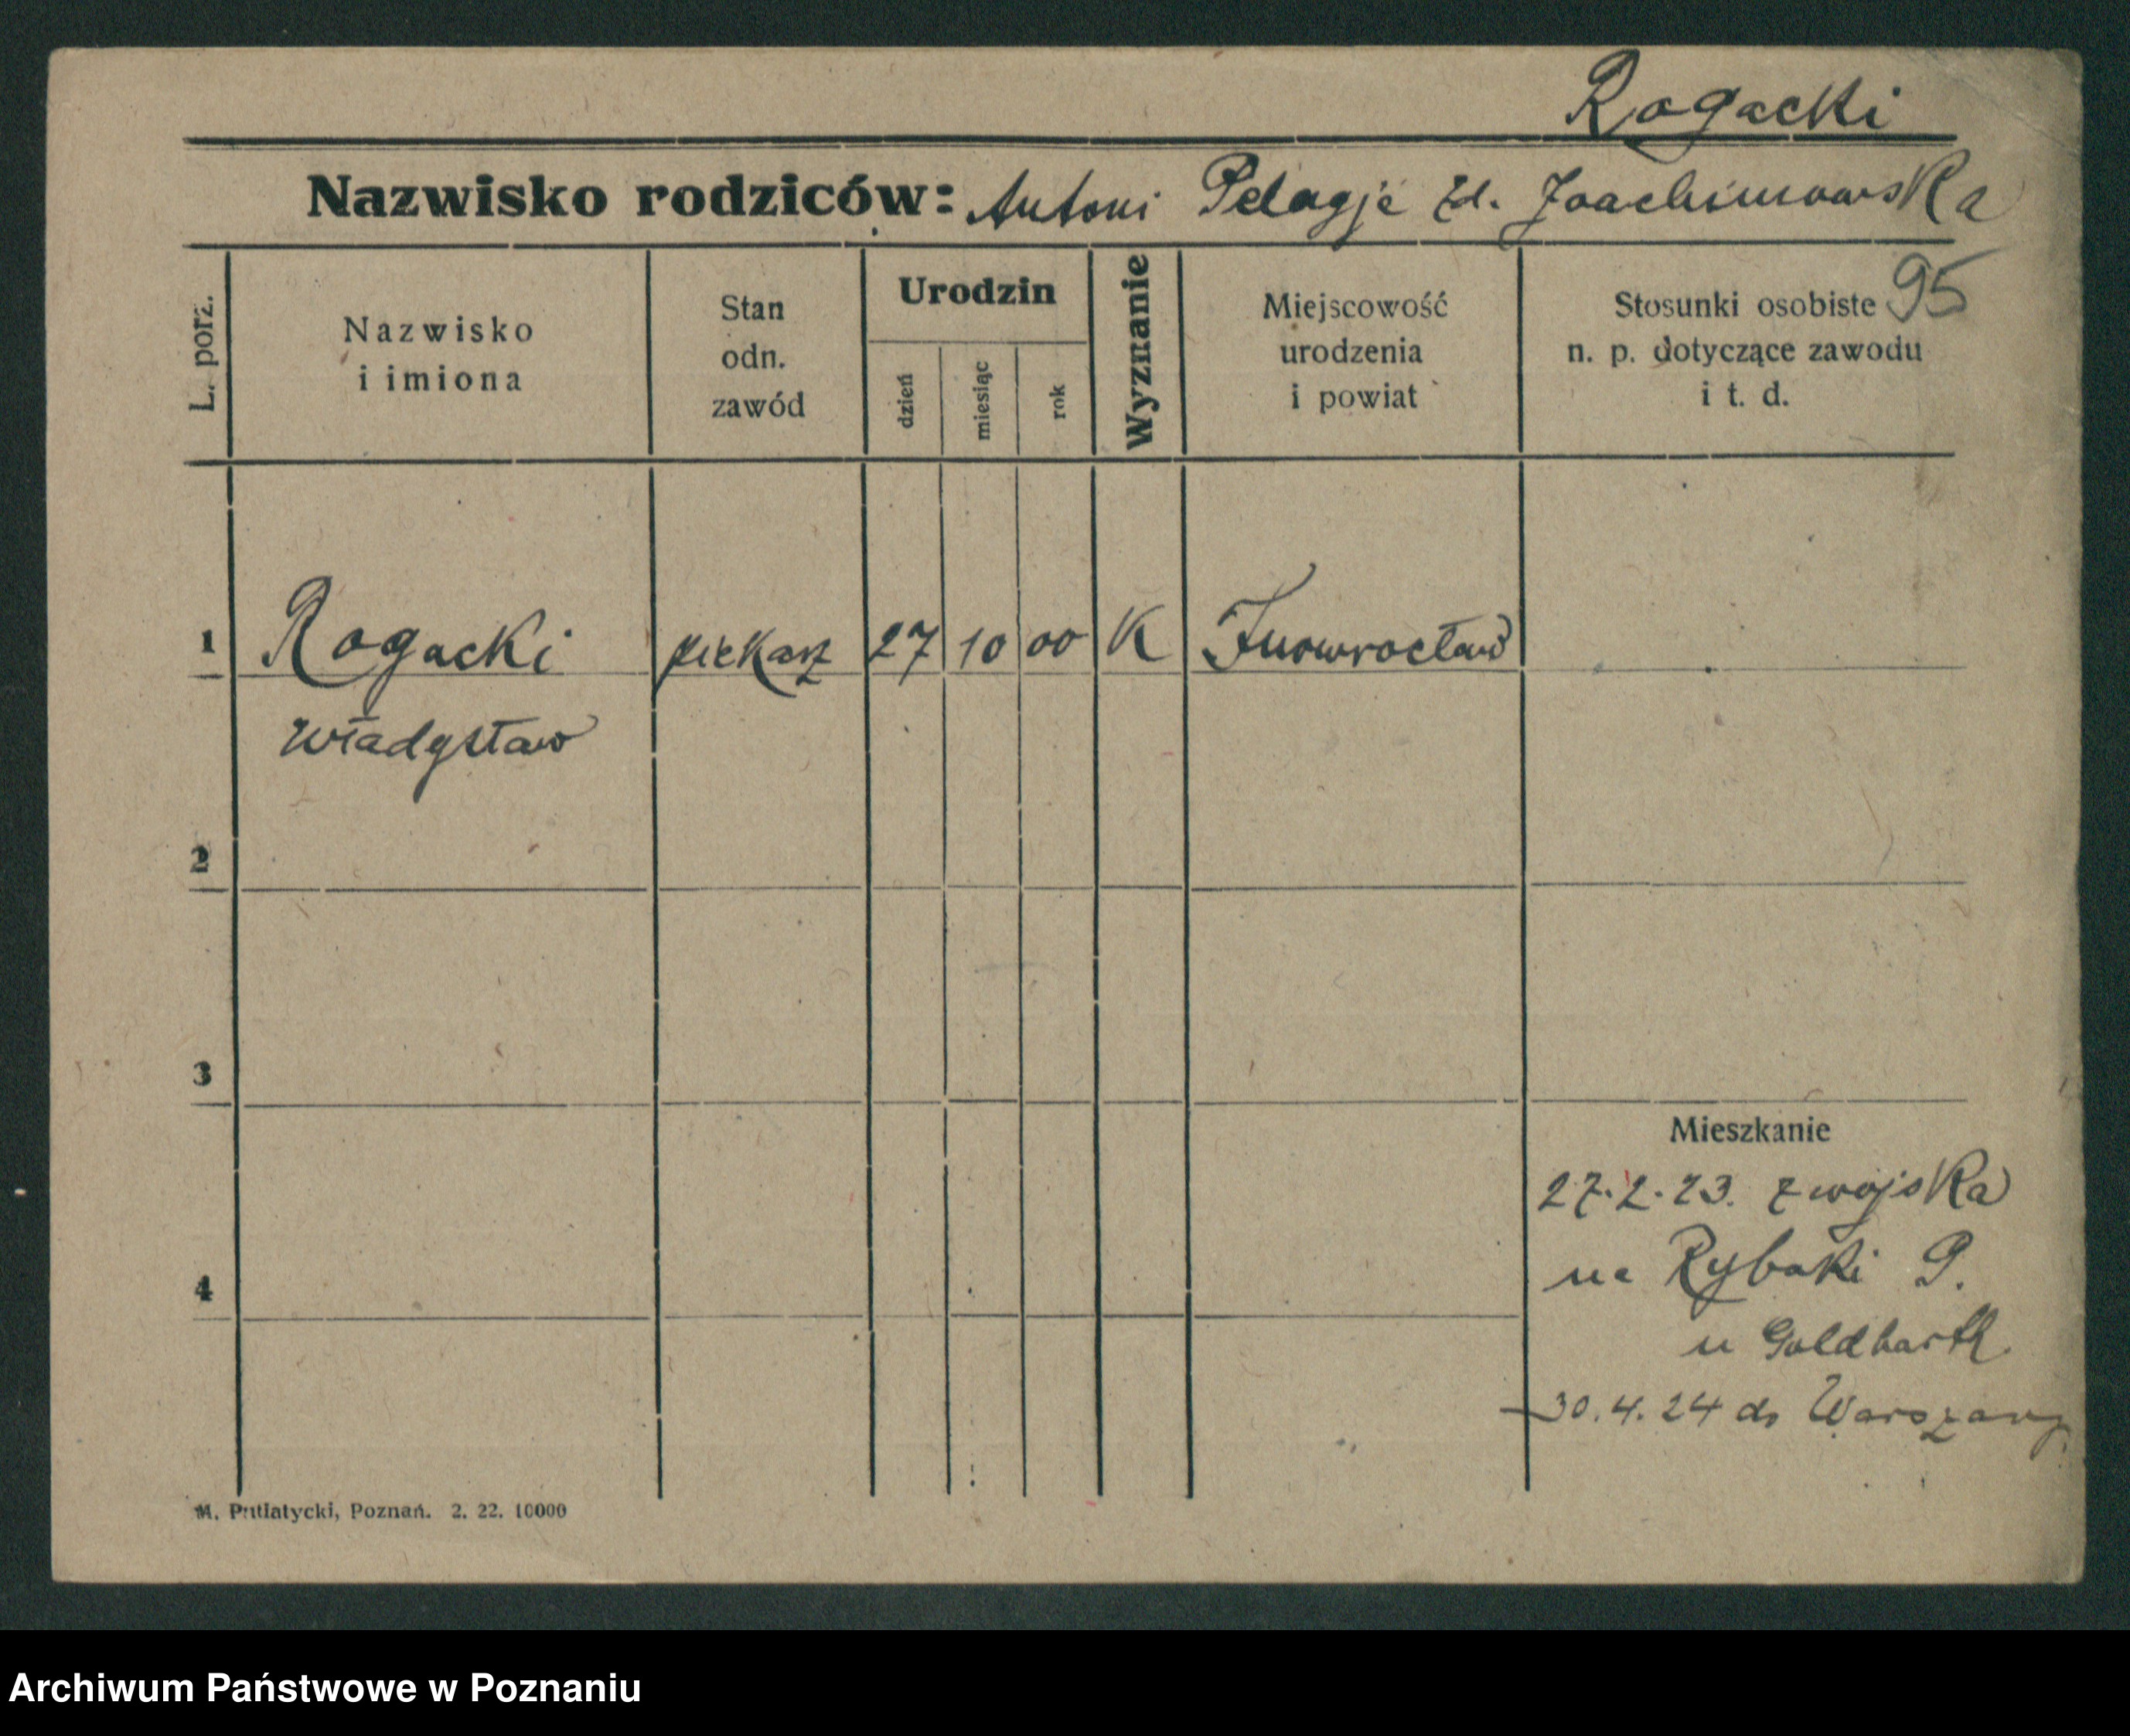 Rogacki
Nazwisko rodziców: Antoni Pelagje zd. Joachimowska
95
L. porz.
Nazwisko
i imiona
Stan
odn.
zawód
Urodzin
dzień
miesiąc
rok
Wyznanie
Miejscowość
urodzenia
i powiat
Stosunki osobiste
n. p. dotyczące zawodu
i t. d.
1 Rogacki piekarz 27 10 00 K Inowrocław
Władysław
2
3
Mieszkanie
27.2.23. z wojska
na Rybaki 9.
4
u Goldbarth.
30.4.24 do Warszawy
M. Putiatycki, Poznań. 2. 22. 10000
Archiwum Państwowe w Poznaniu